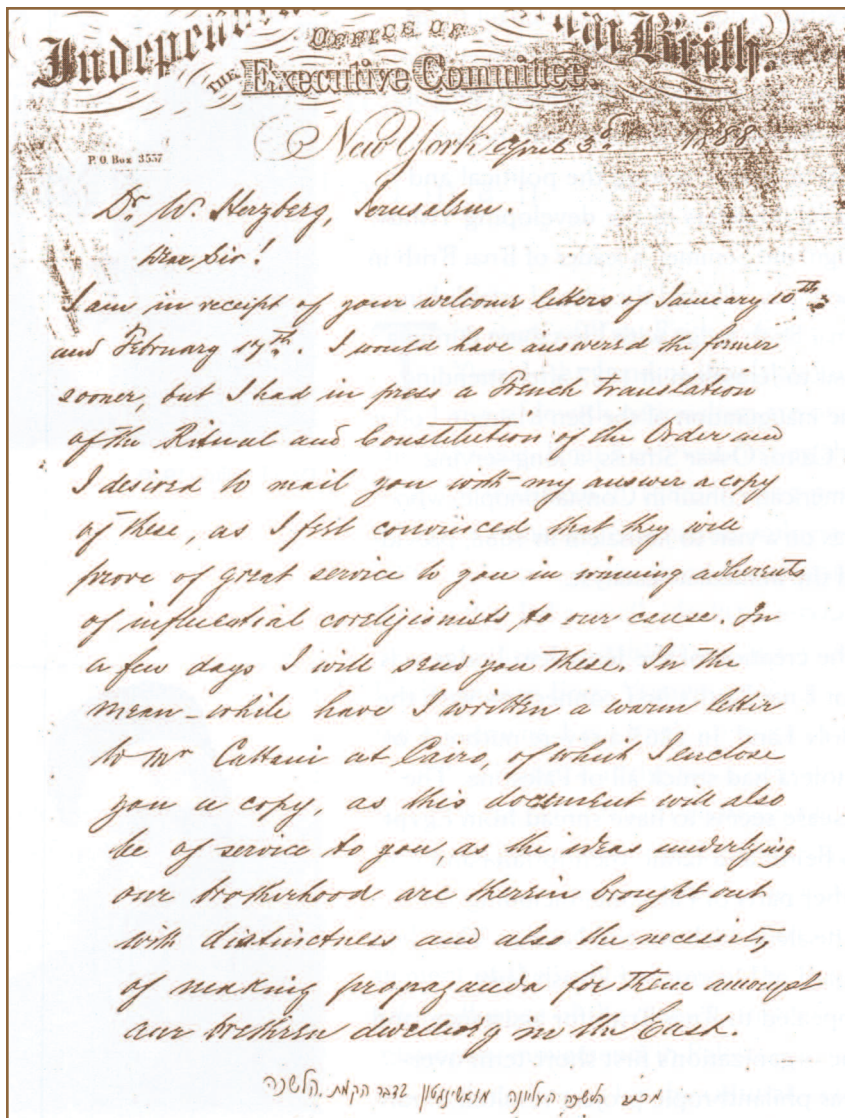 Independent
OFFICE OF
Brith.
THE Executive Committee.
P. O. Box 3557
New York April 3d 1888
Dr. W. Herzberg, Jerusalem.
Dear Sir!
I am in receipt of your welcome letters of January 10th
and February 17th. I would have answered the former
sooner, but I had in press a French translation
of the Ritual and Constitution of the Order and
I desired to mail you with my answer a copy
of these, as I feel convinced that they will
prove of great service to you in winning adherents
of influential coreligionists to our cause. In
a few days I will send you these. In the
mean-while have I written a warm letter
to Mr Cattaui at Cairo, of which I enclose
you a copy, as this document will also
be of service to you, as the ideas underlying
our brotherhood are therein brought out
with distinctness and also the necessity
of making propaganda for them amongst
our brethren dwelling in the East.
מכתב הלשכה העליונה מוואשינגטון בדבר הקמת הלשכה